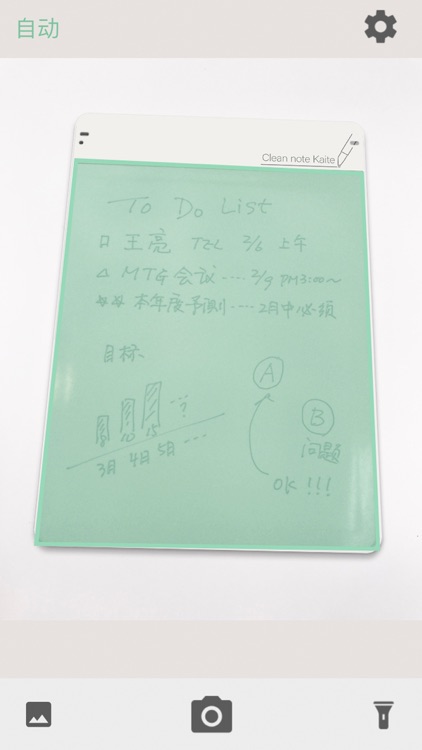 自动
Clean note Kaite
To Do List
王亮 TEL 2/6 上午
MTG会议···· 2/9 PM3:00~
本年度予测···· 2月中必须
目标、
A
B
···?
10 15
问题
3月 4月 5月 ···
OK !!!